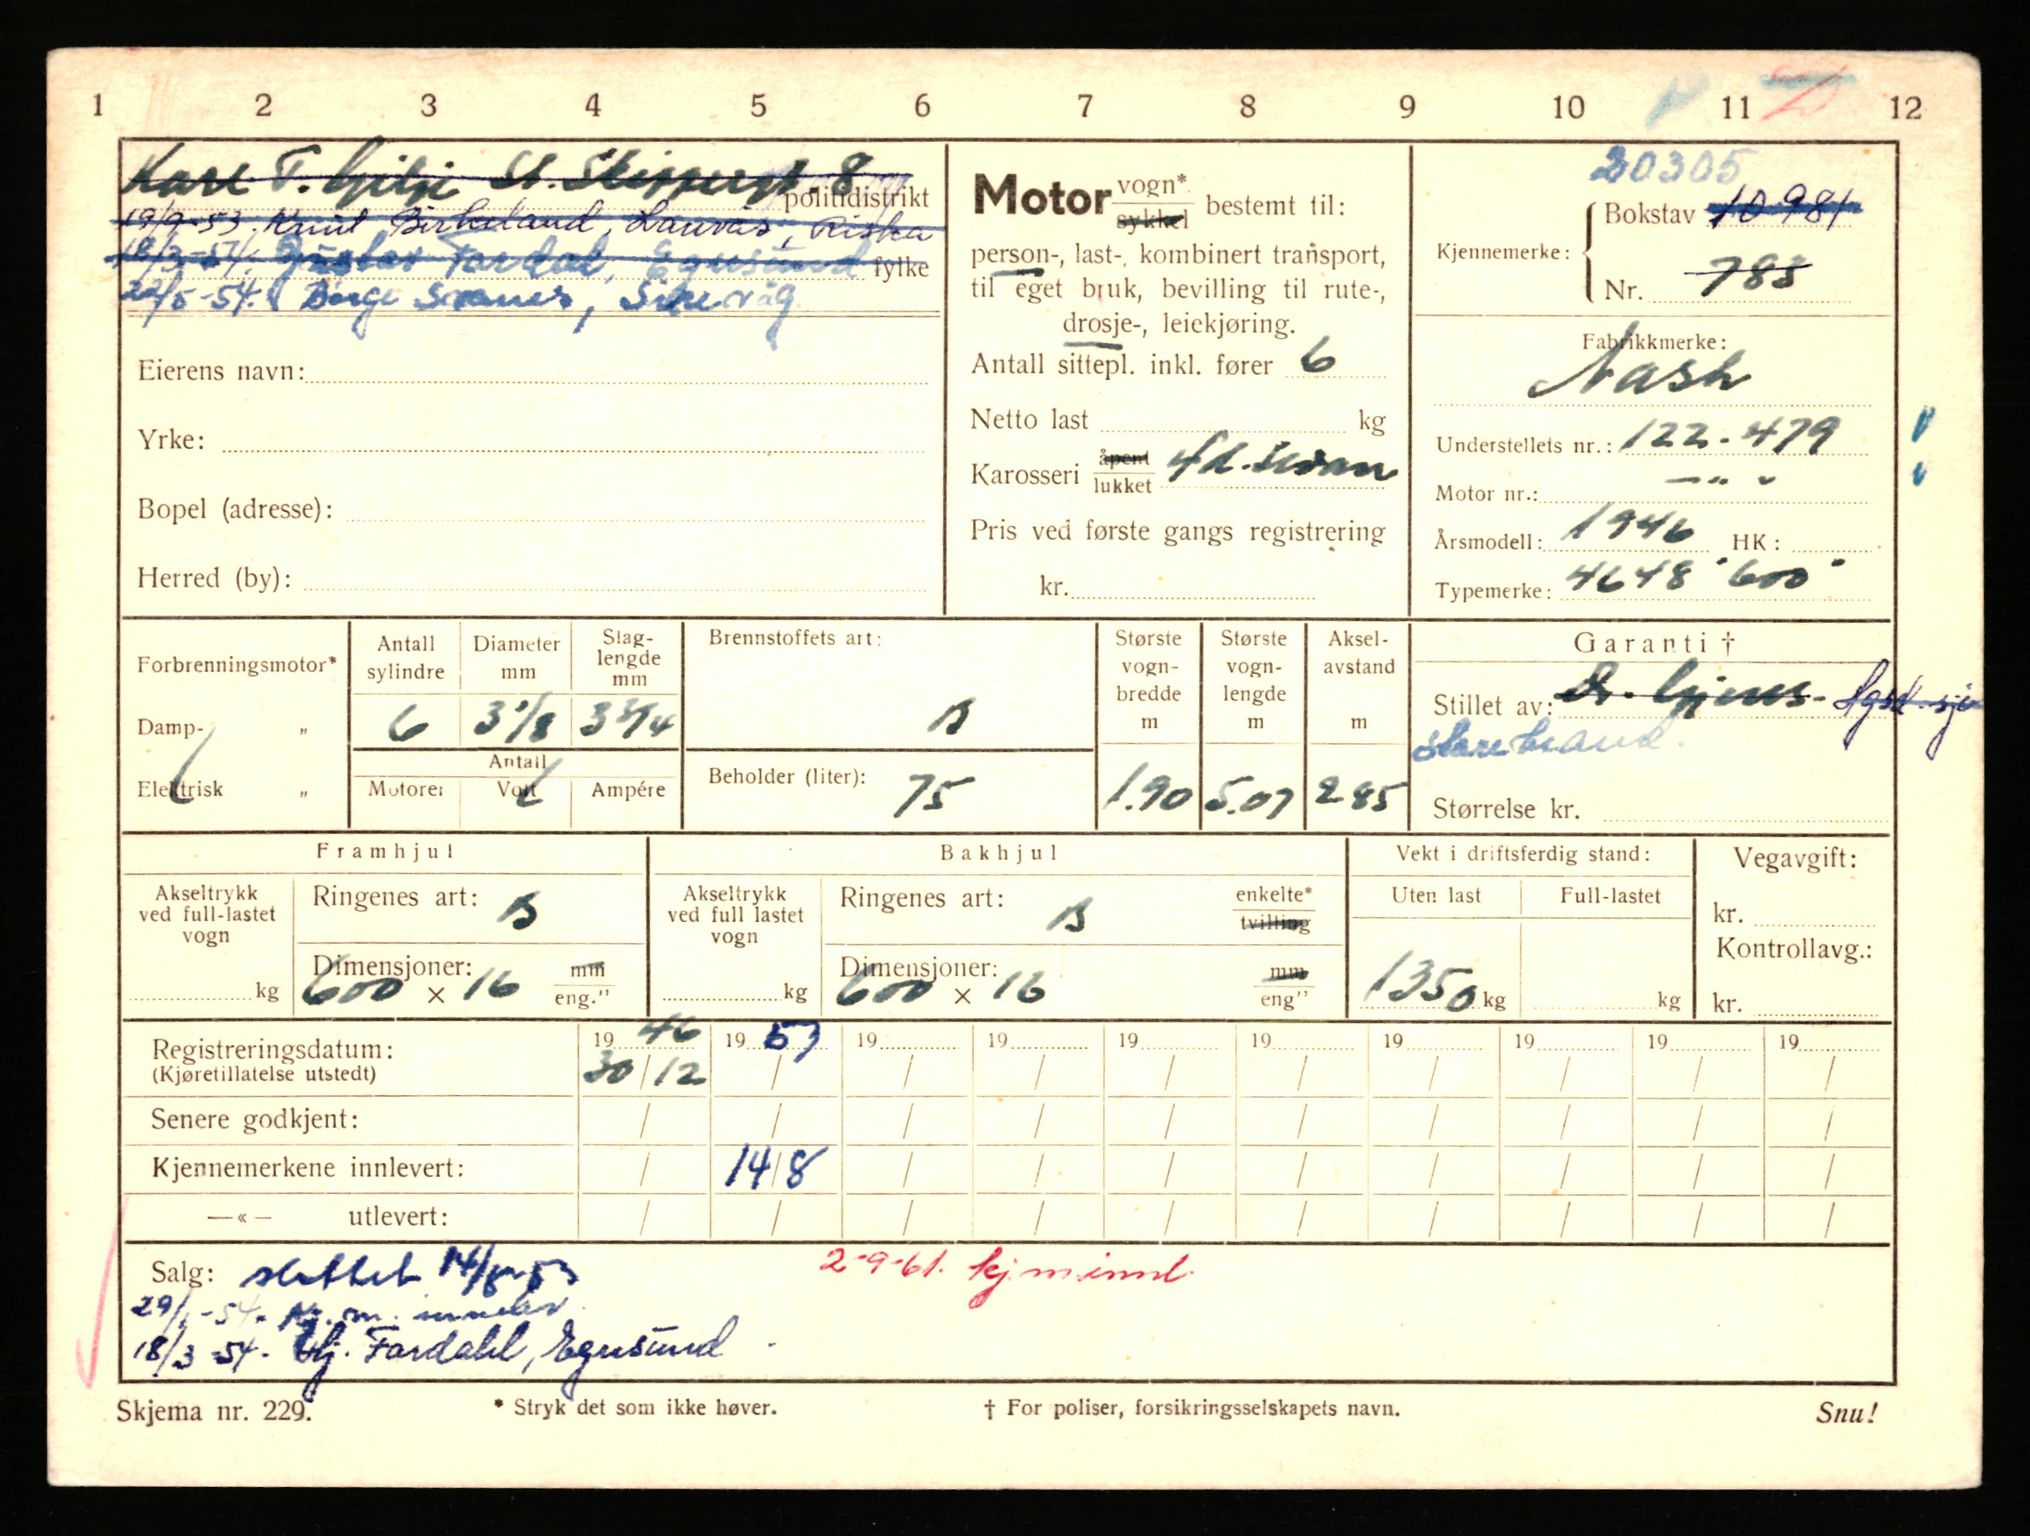 1 2 3 4 5 6 7 8 9 10 11 12
Karl T. Gilje St. Skippergt. 8
politidistrikt
19/9-53. Knut Birkeland, Lauvås, Riska
18/3-54. Gustav Fardal, Egersund
fylke
22/5-54. Børge Svanes, Sirevåg
Eierens navn:
Yrke:
Bopel (adresse):
Herred (by):
Motor vogn* sykkel bestemt til:
person-, last-, kombinert transport,
til eget bruk, bevilling til rute-,
drosje-, leiekjøring.
Antall sittepl. inkl. fører 6
Netto last kg
Karosseri åpent lukket 4d. sedan
Pris ved første gangs registrering
kr.
20305
Kjennemerke: Bokstav 10981
Nr. 783
Fabrikkmerke:
Nash
Understellets nr.: 122.479
Motor nr.: —"—
Årsmodell: 1946 HK:
Typemerke: 4648 "600"
Forbrenningsmotor*
Damp- „
Elektrisk „
Antall sylindre
Diameter mm
Slag- lengde mm
6 3 1/8 3 3/4
Antall
Motorer Volt Ampére
Brennstoffets art:
B
Beholder (liter): 75
Største vogn- bredde m
1.90
Største vogn- lengde m
5.07
Aksel- avstand m
2.85
Garanti †
Stillet av:
Storebrand.
Størrelse kr.
Framhjul
Akseltrykk ved full-lastet vogn
kg
Ringenes art: B
Dimensjoner:
600 × 16 mm eng."
Bakhjul
Akseltrykk ved full lastet vogn
kg
Ringenes art: B enkelte* tvilling
Dimensjoner:
600 × 16 mm eng"
Vekt i driftsferdig stand:
Uten last Full-lastet
1350 kg kg
Vegavgift:
kr.
Kontrollavg.:
kr.
Registreringsdatum: 1946 1953 19 19 19 19 19 19 19 19
(Kjøretillatelse utstedt) 30/12 / / / / / / / / /
Senere godkjent: / / / / / / / / / /
Kjennemerkene innlevert: / 14/8 / / / / / / / /
—«— utlevert: / / / / / / / / / /
Salg: slettet 14/8-53 2-9-61. kj.m.innl.
29/1-54. Kj. m. innlev.
18/3-54. Fardahl, Egersund
Skjema nr. 229. * Stryk det som ikke høver. † For poliser, forsikringsselskapets navn. Snu!